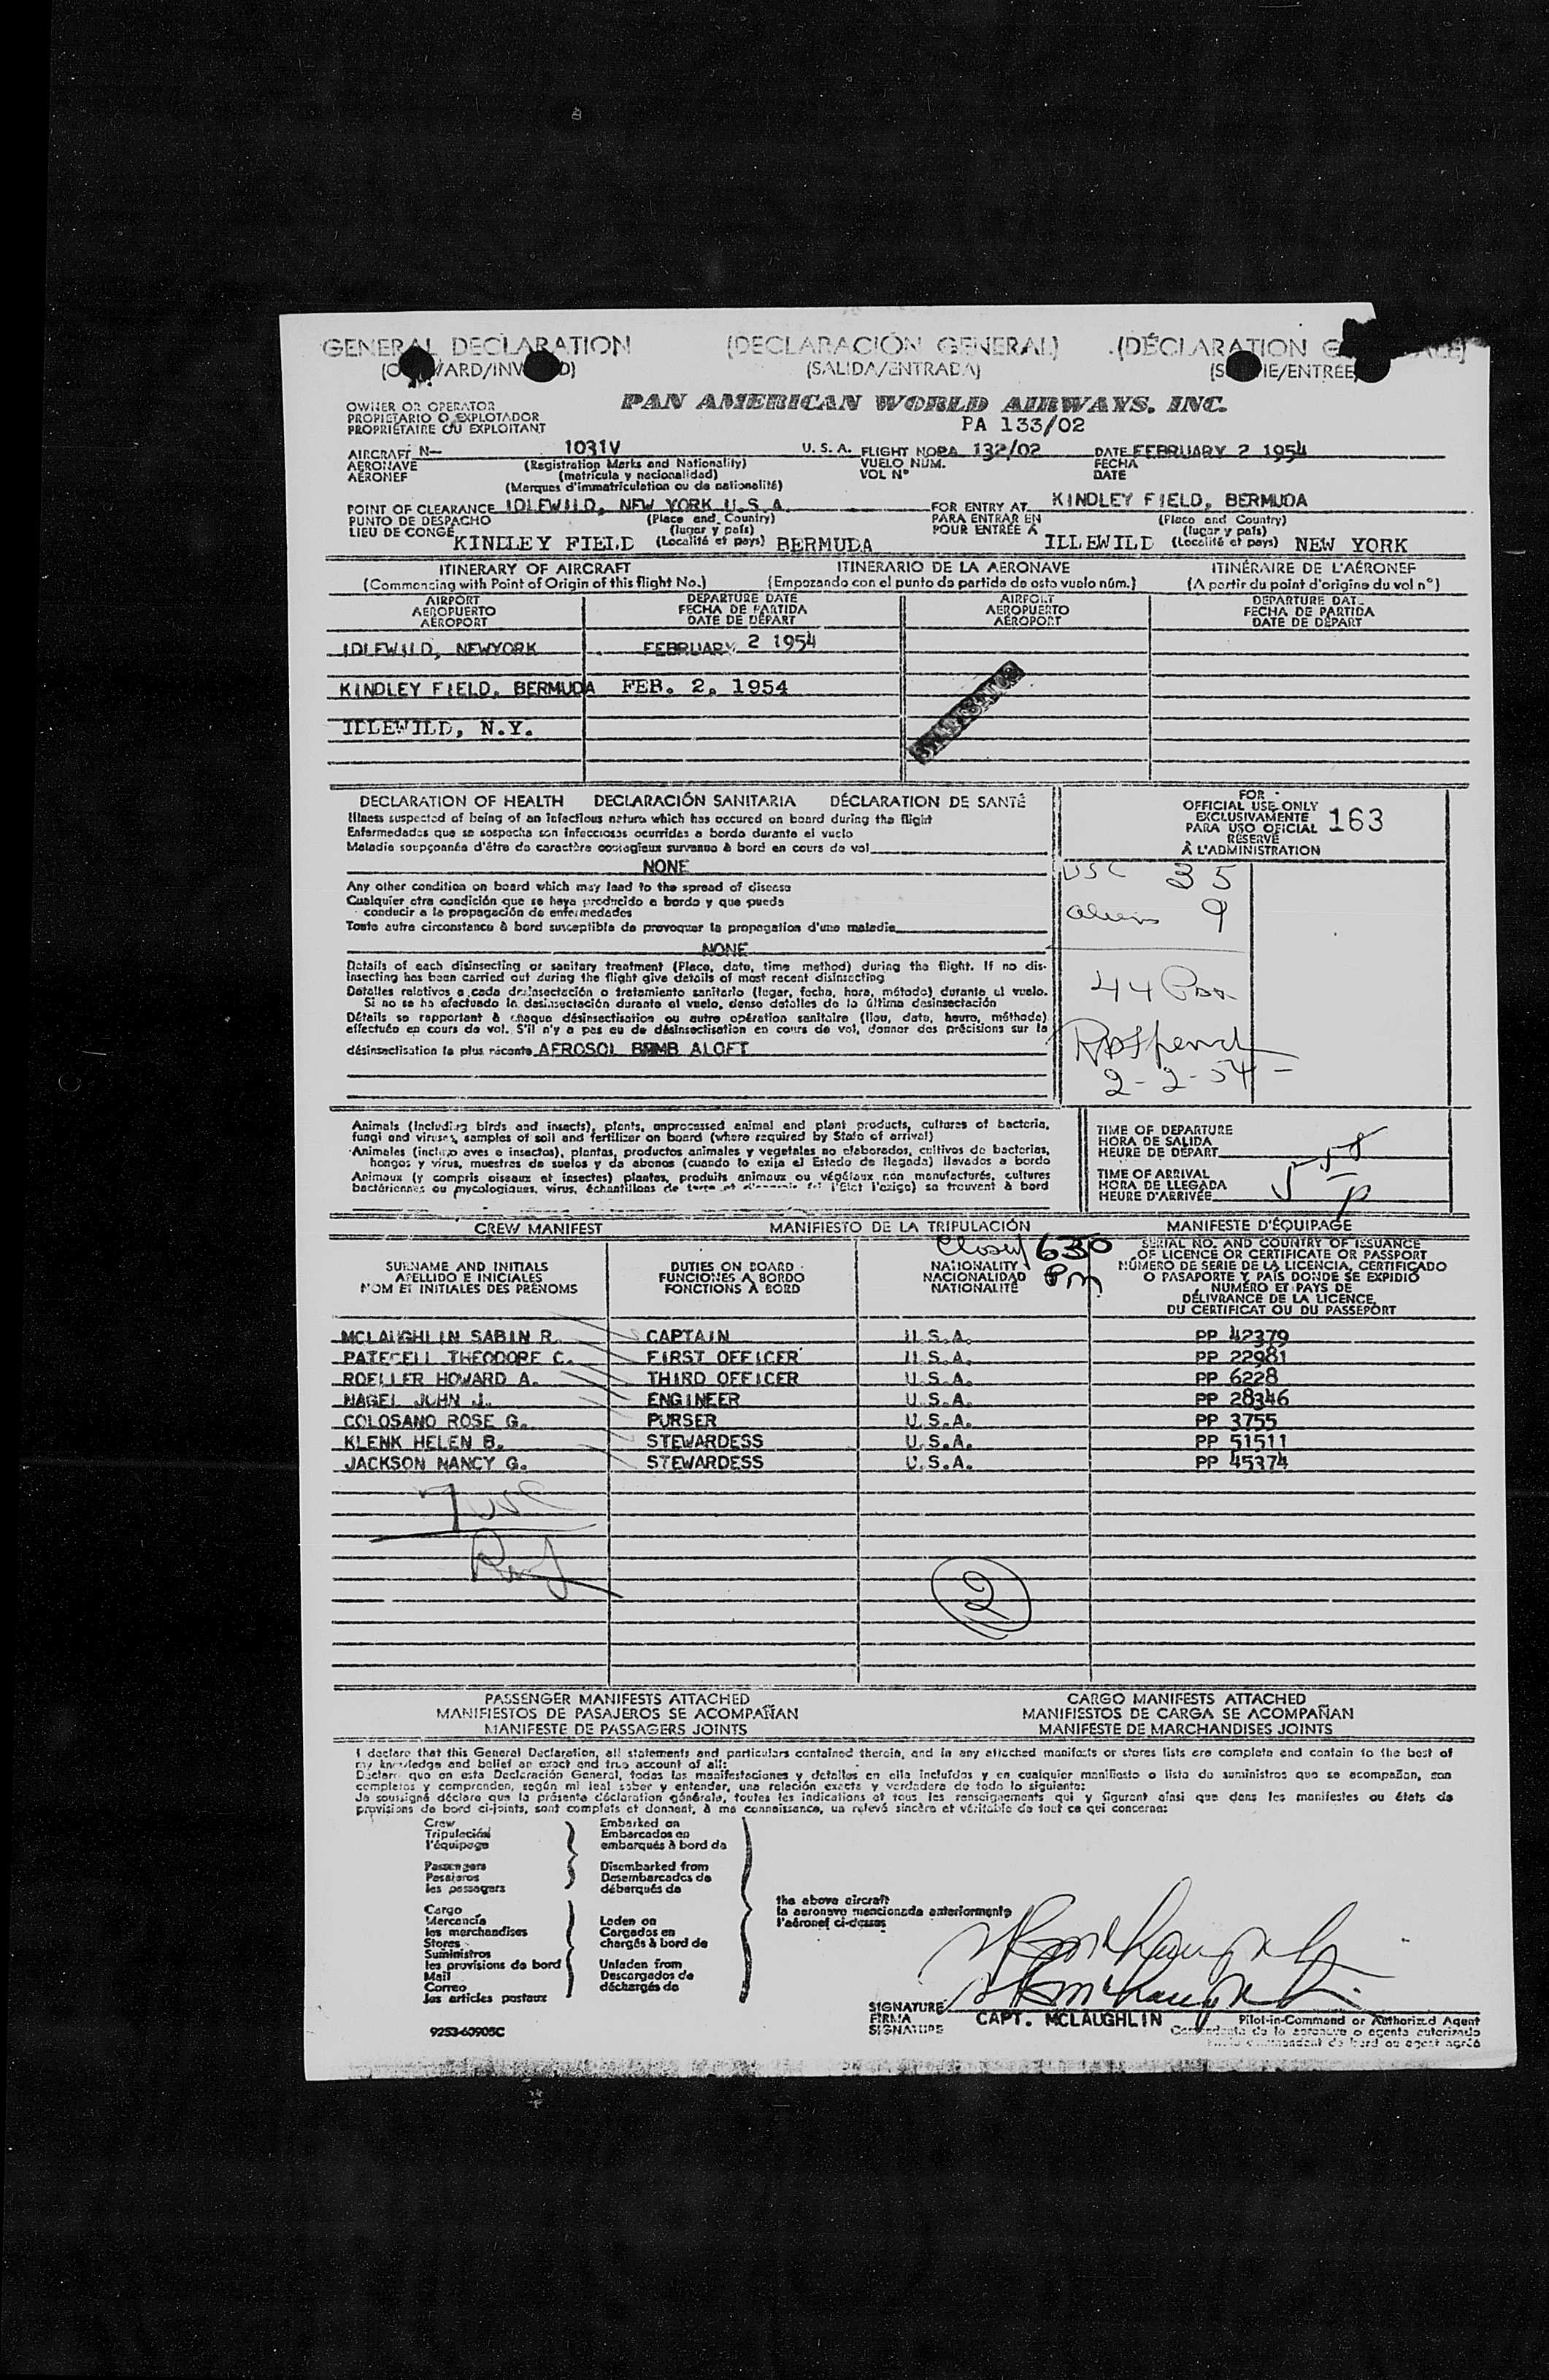 GENERAL DECLARATION (DECLARACIÓN GENERAL) (DÉCLARATION
(SALIDA/ENTRADA)
OWNER OR OPERATOR
PROPIETARIO O EXPLOTADOR
PROPRIÉTAIRE OU EXPLOITANT
PAN AMERICAN WORLD AIRWAYS, INC.
PA 133/02
AIRCRAFT N- 1031V U.S.A. FLIGHT NO PA 132/02 DATE FEBRUARY 2 1954
AERONAVE (Registration Marks and Nationality) VUELO NUM. FECHA
AÉRONEF (matricula y nacionalidad) VOL Nº DATE
(Marques d'immatriculation ou de nationalité)
POINT OF CLEARANCE IDLEWILD, NEW YORK U.S.A. FOR ENTRY AT KINDLEY FIELD, BERMUDA
PUNTO DE DESPACHO (Place and Country) PARA ENTRAR EN (Place and Country)
LIEU DE CONGÉ (lugar y país) POUR ENTRÉE À (lugar y país)
KINDLEY FIELD (Localité et pays) BERMUDA IDLEWILD (Localité et pays) NEW YORK
ITINERARY OF AIRCRAFT ITINERARIO DE LA AERONAVE ITINÉRAIRE DE L'AÉRONEF
(Commencing with Point of Origin of this flight No.) (Empezando con el punto de partida de este vuelo núm.) (A partir du point d'origine du vol nº)
AIRPORT DEPARTURE DATE AIRPORT DEPARTURE DATE
AEROPUERTO FECHA DE PARTIDA AEROPUERTO FECHA DE PARTIDA
AÉROPORT DATE DE DÉPART AÉROPORT DATE DE DÉPART
IDLEWILD, NEWYORK FEBRUARY 2 1954
KINDLEY FIELD, BERMUDA FEB. 2, 1954
IDLEWILD, N.Y.
DECLARATION OF HEALTH DECLARACIÓN SANITARIA DÉCLARATION DE SANTÉ
Illness suspected of being of an infectious nature which has occured on board during the flight
Enfermedades que se sospecha son infecciosas ocurridas a bordo durante el vuelo
Maladie soupçonnée d'être de caractère contagieux survenue à bord en cours de vol
NONE
FOR
OFFICIAL USE ONLY
EXCLUSIVAMENTE
PARA USO OFICIAL
RÉSERVÉ
À L'ADMINISTRATION
163
USC 35
aliens 9
44 Pax
2-2-54
Any other condition on board which may lead to the spread of disease
Cualquier otra condición que se haya producido a bordo y que pueda
conducir a la propagación de enfermedades
Toute autre circonstance à bord susceptible de provoquer la propagation d'une maladie
NONE
Details of each disinsecting or sanitary treatment (Place, date, time method) during the flight. If no dis-
insecting has been carried out during the flight give details of most recent disinsecting
Detalles relativos a cada desinsectación o tratamiento sanitario (lugar, fecha, hora, método) durante el vuelo.
Si no se ha efectuado la desinsectación durante el vuelo, dense detalles de la última desinsectación
Détails se rapportant à chaque désinsectisation ou autre opération sanitaire (lieu, date, heure, méthode)
effectuée en cours de vol. S'il n'y a pas eu de désinsectisation en cours de vol, donner des précisions sur la
désinsectisation la plus récente AEROSOL BOMB ALOFT
Animals (Including birds and insects), plants, unprocessed animal and plant products, cultures of bacteria,
fungi and viruses, samples of soil and fertilizer on board (where required by State of arrival)
Animales (incluso aves e insectos), plantas, productos animales y vegetales no elaborados, cultivos de bacterias,
hongos y virus, muestras de suelos y de abonos (cuando lo exija el Estado de llegada) llevados a bordo
Animaux (y compris oiseaux et insectes) plantes, produits animaux ou végétaux non manufacturés, cultures
bactériennes ou mycologiques, virus, échantillons de terre et d'engrais (si l'État l'exige) se trouvent à bord
TIME OF DEPARTURE
HORA DE SALIDA
HEURE DE DÉPART
TIME OF ARRIVAL
HORA DE LLEGADA
HEURE D'ARRIVÉE
558 p
CREW MANIFEST MANIFIESTO DE LA TRIPULACIÓN MANIFESTE D'ÉQUIPAGE
Closed 630 Pm
SURNAME AND INITIALS
APELLIDO E INICIALES
NOM ET INITIALES DES PRÉNOMS
DUTIES ON BOARD
FUNCIONES A BORDO
FONCTIONS À BORD
NATIONALITY
NACIONALIDAD
NATIONALITÉ
SERIAL NO. AND COUNTRY OF ISSUANCE
OF LICENCE OR CERTIFICATE OR PASSPORT
NÚMERO DE SERIE DE LA LICENCIA, CERTIFICADO
O PASAPORTE Y PAÍS DONDE SE EXPIDIÓ
NUMÉRO ET PAYS DE
DÉLIVRANCE DE LA LICENCE,
DU CERTIFICAT OU DU PASSEPORT
MCLAUGHLIN SABIN R. CAPTAIN U.S.A. PP 42379
PATECELL THEODORE C. FIRST OFFICER U.S.A. PP 22981
ROELLER HOWARD A. THIRD OFFICER U.S.A. PP 6228
NAGEL JOHN J. ENGINEER U.S.A. PP 28346
COLOSANO ROSE G. PURSER U.S.A. PP 3755
KLENK HELEN B. STEWARDESS U.S.A. PP 51511
JACKSON NANCY G. STEWARDESS U.S.A. PP 45374
7 USC
2
PASSENGER MANIFESTS ATTACHED CARGO MANIFESTS ATTACHED
MANIFIESTOS DE PASAJEROS SE ACOMPAÑAN MANIFIESTOS DE CARGA SE ACOMPAÑAN
MANIFESTE DE PASSAGERS JOINTS MANIFESTE DE MARCHANDISES JOINTS
I declare that this General Declaration, all statements and particulars contained therein, and in any attached manifests or stores lists are complete and contain to the best of
my knowledge and belief an exact and true account of all:
Declaro que en esta Declaración General, todas las manifestaciones y detalles en ella incluídos y en cualquier manifiesto o lista de suministros que se acompañan, son
completos y comprenden, según mi leal saber y entender, una relación exacta y verdadera de todo lo siguiente:
Je soussigné déclare que la présente déclaration générale, toutes les indications et tous les renseignements qui y figurent ainsi que dans les manifestes ou états de
provisions de bord ci-joints, sont complets et donnent, à ma connaissance, un relevé sincère et véritable de tout ce qui concerne:
Crew Embarked on
Tripulación Embarcados en
l'équipage embarqués à bord de
Passengers Disembarked from
Pasajeros Desembarcados de
les passagers débarqués de
the above aircraft
la aeronave mencionada anteriormente
l'aéronef ci-dessus
Cargo
Mercancía Laden on
les marchandises Cargados en
Stores chargés à bord de
Suministros
les provisions de bord Unladen from
Mail Descargados de
Correo déchargés de
les articles postaux
SIGNATURE
FIRMA
SIGNATURE
CAPT. MCLAUGHLIN
Pilot-in-Command or Authorized Agent
Comandante de la aeronave o agente autorizado
9253-60905C